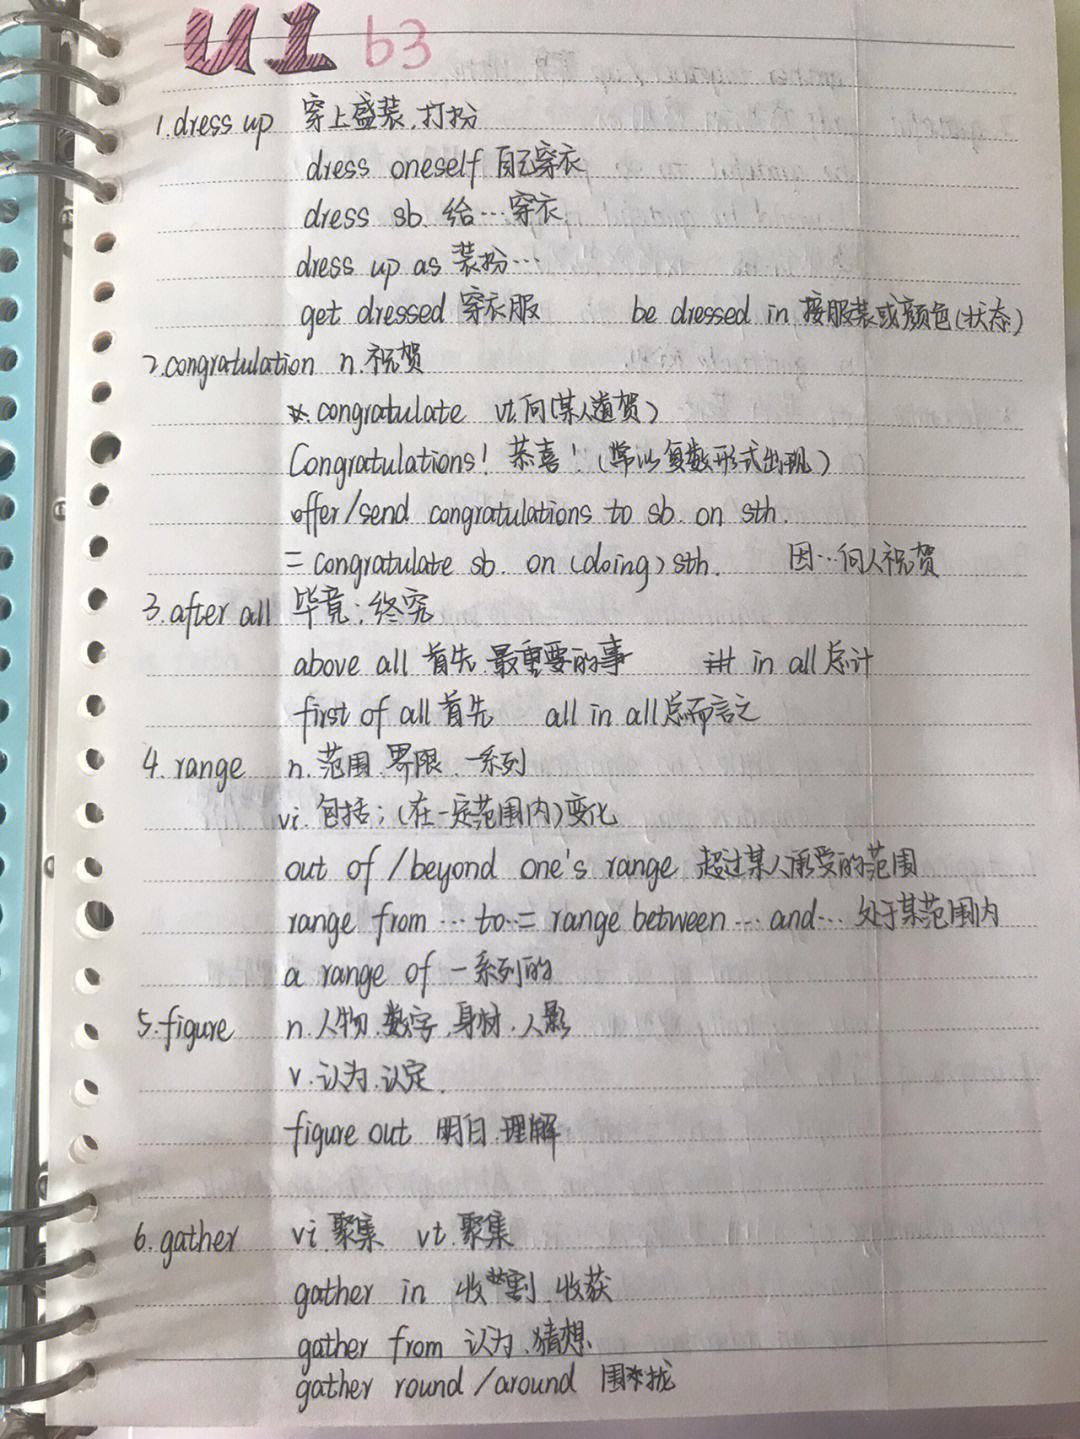 U1 b3
1.dress up 穿上盛装.打扮
dress oneself 自己穿衣
dress sb. 给…穿衣
dress up as 装扮…
get dressed 穿衣服 be dressed in 接服装或颜色(状态)
2.congratulation n.祝贺
congratulate vt.向(某人)道贺)
Congratulations! 恭喜!(常以复数形式出现)
offer/send congratulations to sb. on sth.
= congratulate sb. on (doing) sth. 因…向人祝贺
3.after all 毕竟;终究
above all 首先.最重要的事 in all 总计
first of all 首先 all in all 总而言之
4.range n.范围.界限.一系列
vi.包括;(在一定范围内)变化
out of/beyond one's range 超过某人承受的范围
range from … to … = range between … and … 处于某范围内
a range of 一系列的
5.figure n.人物.数字.身材.人影
v.认为.认定.
figure out 明白.理解
6.gather vi.聚集 vt.聚集
gather in 收割.收获
gather from 认为.猜想.
gather round/around 围拢